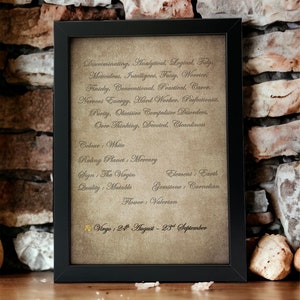 Discriminating, Analytical, Logical, Tidy,
Meticulous, Intelligent, Fussy, Worrier,
Finicky, Conventional, Practical, Carer,
Nervous Energy, Hard Worker, Perfectionist,
Purity, Obsessive Compulsive Disorders,
Over Thinking, Devoted, Cleanliness
Colour : White
Ruling Planet : Mercury
Sign : The Virgin Element : Earth
Quality : Mutable Gemstone : Carnelian
Flower : Valerian
Virgo : 24th August - 23rd September